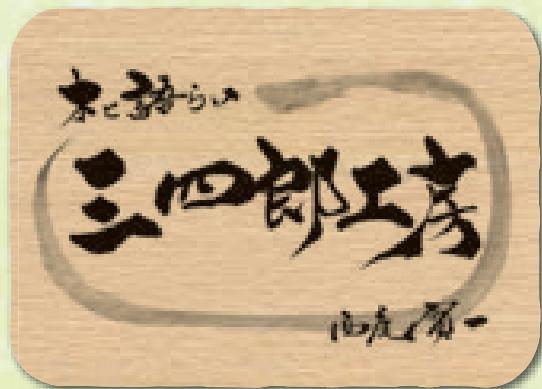 木と語らい
三四郎工房